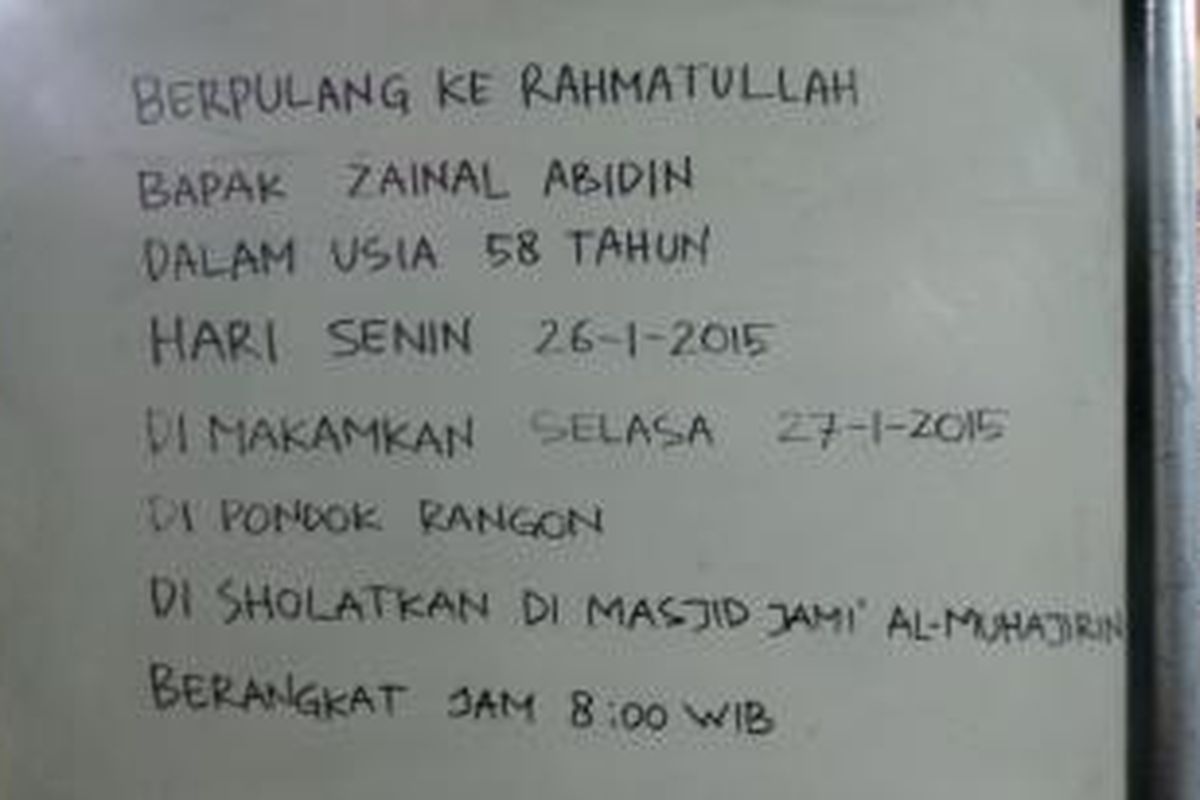 BERPULANG KE RAHMATULLAH
BAPAK ZAINAL ABIDIN
DALAM USIA 58 TAHUN
HARI SENIN 26-1-2015
DI MAKAMKAN SELASA 27-1-2015
DI PONDOK RANGON
DI SHOLATKAN DI MASJID JAMI' AL-MUHAJIRIN
BERANGKAT JAM 8:00 WIB